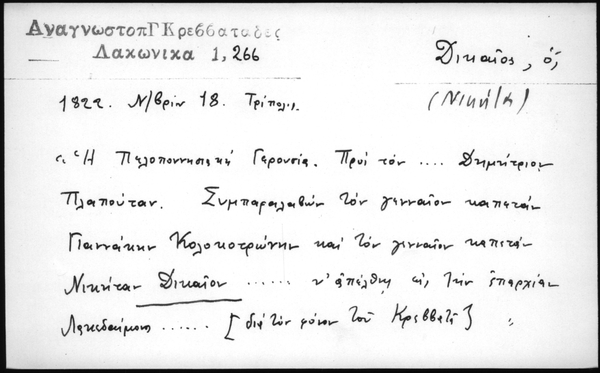 ΑναγνωστοπΓΚρεββαταδες
Λακωνικα 1,266
Δικαῖος, ὁ,
(Νικήτα)
1822. Ν/βρίου 18. Τρίπολις.
"Ἡ Πελοποννησιακή Γερουσία. Πρός τόν .... Δημήτριον
Πλαπούταν. Συμπαραλαβών τόν γενναῖον καπετάν
Γιαννάκην Κολοκοτρώνην καί τόν γενναῖον καπετάν
Νικήταν Δικαῖον ...... ν' ἀπέλθῃς εἰς τήν ἐπαρχίαν
Λακεδαίμονος ...... [διά τόν φόνον τοῦ Κρεββατᾶ] "